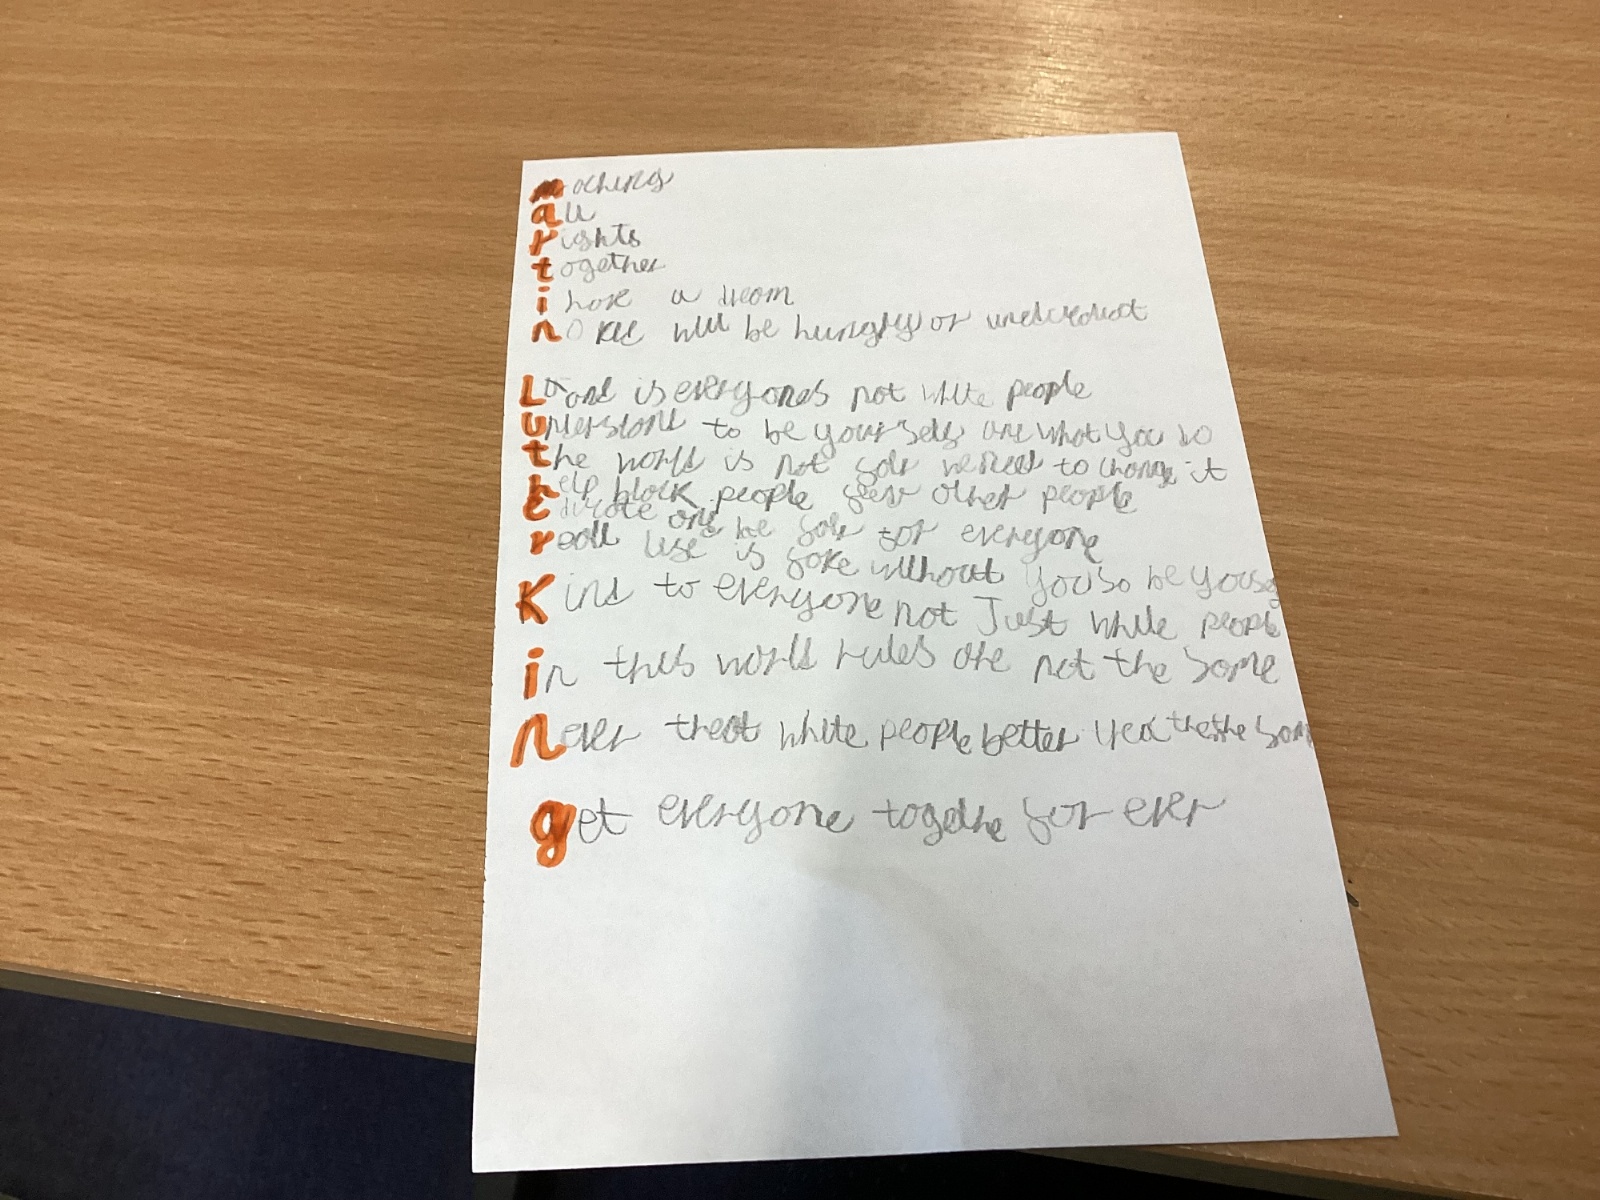 maching
all
rights
together
i have a dream
no one will be hungry or
Land is everyones not white people
understand to be your self and what you do
the world is not safe we need to change it
help black people other people
and be safe for everyone
life is without you so be
Kind to everyone not Just white people
in this world rules are not the same
Never white people better the same
get everyone togethe for ever